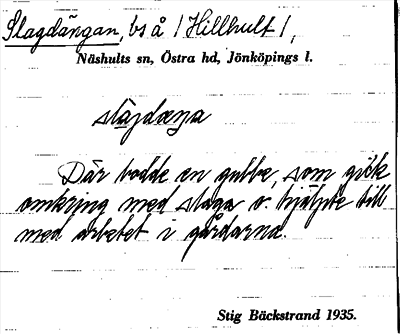 Slagdängan, bs å /Hillhult/,
Näshults sn, Östra hd, Jönköpings l.
slagdæŋa
Där bodde en gubbe, som gick
omkring med slaga o. hjälpte till
med arbetet i gårdarna.
Stig Bäckstrand 1935.